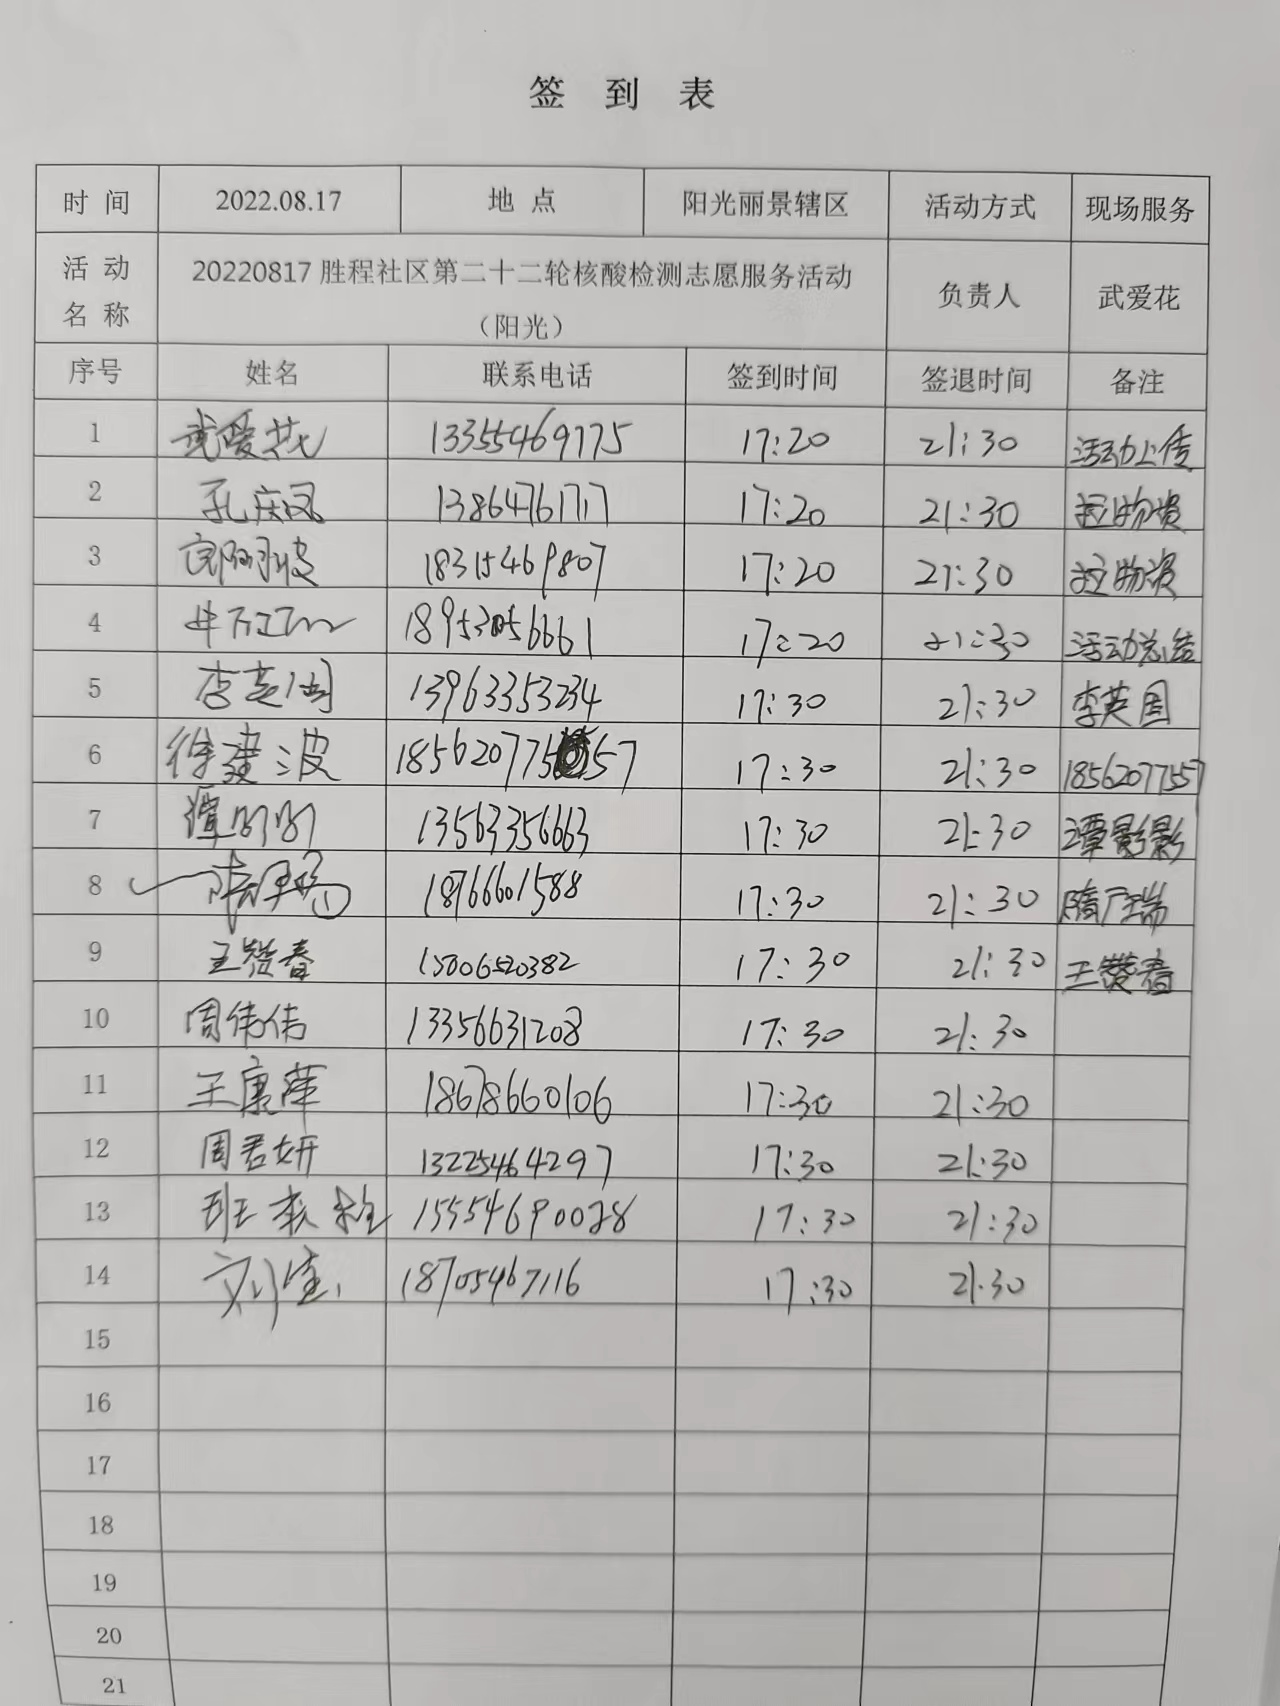 签 到 表
时 间 2022.08.17 地 点 阳光丽景辖区 活动方式 现场服务
活 动 名 称 20220817胜程社区第二十二轮核酸检测志愿服务活动 负责人 武爱花
（阳光）
序号 姓名 联系电话 签到时间 签退时间 备注
1 武爱花 13355469775 17:20 21:30 活动上传
2 孔庆凤 13864761717 17:20 21:30 拉物资
3 18315469807 17:20 21:30 拉物资
4 18953056661 17:20 21:30 活动总结
5 李英国 13963353234 17:30 21:30 李英国
6 徐建波 1856207757 17:30 21:30 18562077557
7 谭影影 13563356663 17:30 21:30 谭影影
8 18766601588 17:30 21:30 隋广瑞
9 王赞春 15806520382 17:30 21:30 王赞春
10 周伟伟 13356631208 17:30 21:30
11 王康萍 18678660106 17:30 21:30
12 周君妍 13225464297 17:30 21:30
13 班 15554690028 17:30 21:30
14 刘 18705467116 17:30 21:30
15
16
17
18
19
20
21